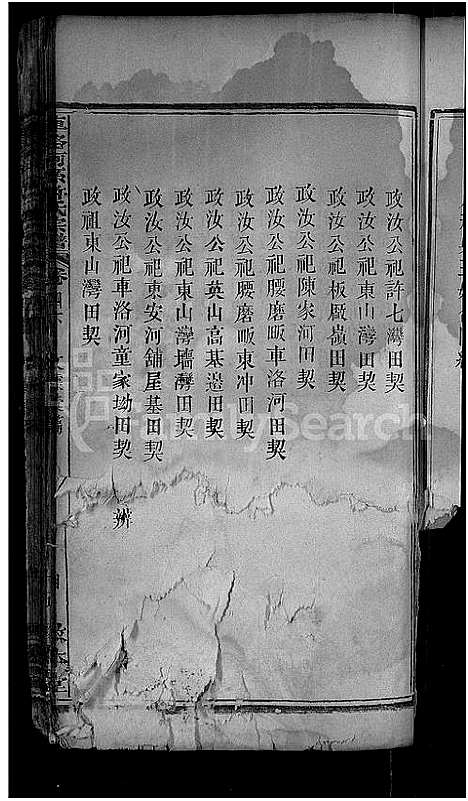 政汝公祀許七灣田契
政汝公祀東山灣田契
政汝公祀板厰嶺田契
政汝公祀陳家河田契
政汝公祀腰磨畈車洛河田契
政汝公祀腰磨畈東冲田契
政汝公祀英山高基邉田契
政汝公祀東山灣墻灣田契
政汝公祀東安河舖屋基田契
政汝公祀車洛河童家坳田契 辨
政祖東山灣田契
FamilySearch